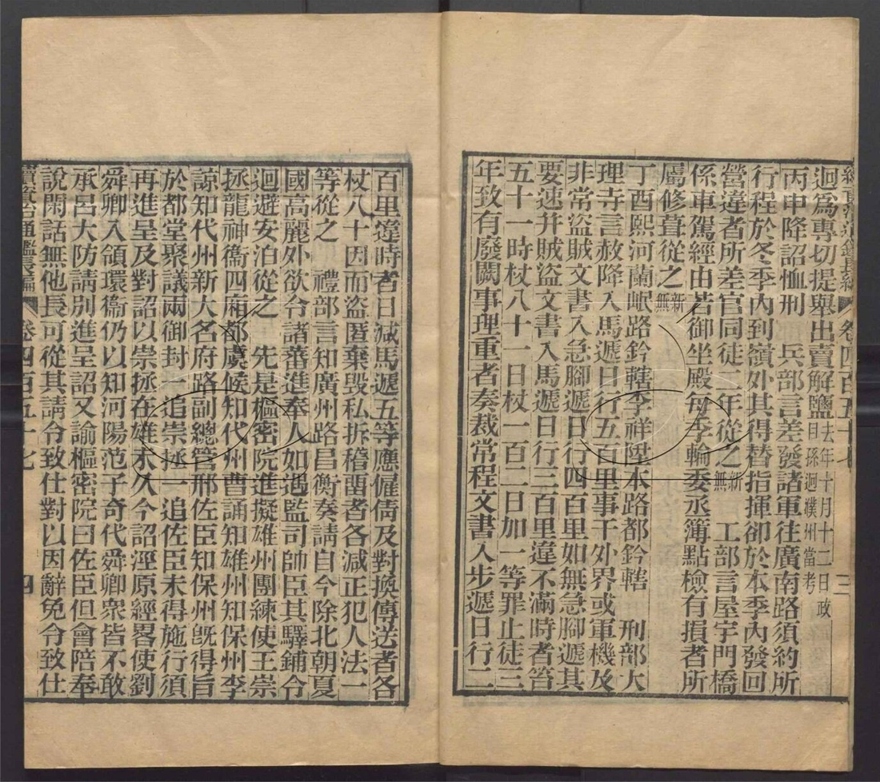 迴爲專切提舉出賣解鹽去年十月十二日政目孫迴濮州當考
丙申降詔恤刑　兵部言差發諸軍往廣南路須約所
行程於冬季內到嶺外其得替指揮卻於本季內發回
營違者所差官同徒二年從之新無　工部言屋宇門橋
係車駕經由若御坐殿每季輪委丞簿點檢有損者所
屬修葺從之新無
丁酉熙河蘭岷路鈐轄李祥陞本路都鈐轄　刑部大
理寺言赦降入馬遞日行五百里事干外界或軍機及
非常盜賊文書入急腳遞日行四百里如無急腳遞其
要速并賊盜文書入馬遞日行三百里違不滿時者笞
五十一時杖八十一日杖一百二日加一等罪止徒三
年致有廢闕事理重者奏裁常程文書入步遞日行二
卷四百五十七
三
百里違時者日減馬遞五等應僱倩及對換傳送者各
杖八十因而盜匿棄毀私拆稽留者各減正犯人法一
等從之　禮部言知廣州路昌衡奏請自今除北朝夏
國高麗外欲令諸蕃進奉人如遇監司帥臣其驛鋪令
迴避安泊從之　先是樞密院進擬雄州團練使王崇
拯龍神衞四廂都虞候知代州曹誦知雄州知保州李
諒知代州新大名府路副總管邢佐臣知保州旣得旨
於都堂聚議兩御封一追崇拯一追佐臣未得施行須
再進呈及對詔以崇拯在雄未久今詔涇原經畧使劉
舜卿入領環衞仍以知河陽范子奇代舜卿衆皆不敢
承呂大防請別進呈詔又諭樞密院曰佐臣但會陪奉
說閑話無他長可從其請令致仕對以因辭免令致仕
續資治通鑑長編
卷四百五十七
四